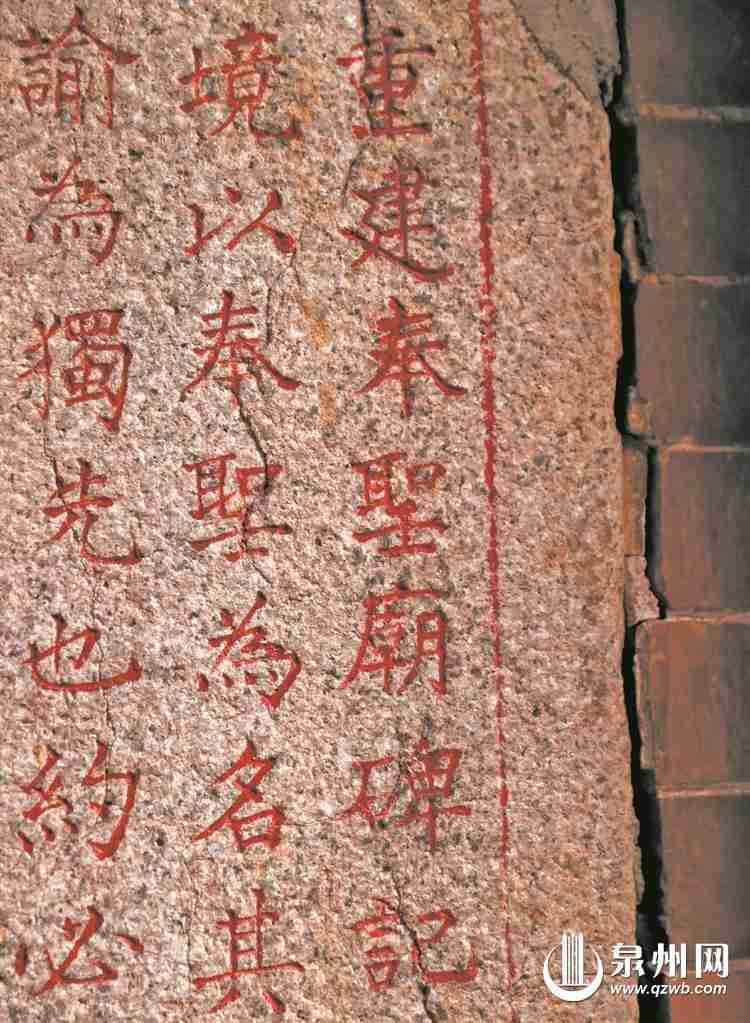 重建奉聖廟碑記
境以奉聖為名其
諭為獨先也約必
泉州网
www.qzwb.com